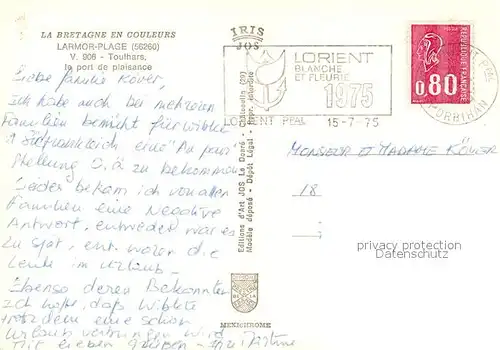 LA BRETAGNE EN COULEURS
LARMOR-PLAGE (56260)
V. 906 - Toulhars,
le port de plaisance
IRIS
JOS
LORIENT
BLANCHE
ET FLEURIE
1975
LORIENT PPAL
15-7-75
0,80
POSTES
REPUBLIQUE FRANCAISE
PPAL
MORBIHAN
Liebe Familie Köver,
Ich habe auch bei mehreren
Familien bemüht für Wiebke
eine "Au pair"
Stellung o.ä zu bekommen
Leider bekam ich von allen
Familien eine Negative
Antwort, entweder war es
zu spät, ent. waren die
Leute im Urlaub -
Ebenso deren Bekannten
Ich hoffe, dass Wiebke
trotzdem eine schön
Urlaub verbringen wird
Mit lieben Grüßen -
MONSIEUR ET MADAME KÖVER
18
Editions d'Art JOS Le Doaré - Châteaulin (29)
Modèle déposé - Dépôt Légal - Repr. interdite
MEXICHROME
privacy protection
Datenschutz